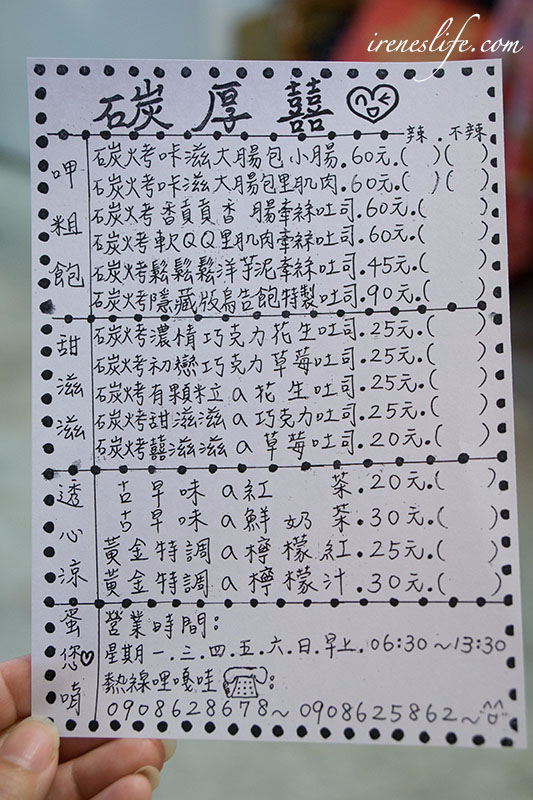 ireneslife.com
碳厚囍
辣.不辣
呷粗飽
碳火烤咔滋大腸包小腸.60元.( )( )
碳火烤咔滋大腸包里肌肉.60元.( )( )
碳火烤香貢貢香腸牽絲吐司.60元.( )
碳火烤軟QQ里肌肉牽絲吐司.60元.( )
碳火烤鬆鬆鬆洋芋泥牽絲吐司.45元.( )
碳火烤隱藏版烏告飽特製吐司.90元.( )
甜滋滋
碳火烤濃情巧克力花生吐司.25元.( )
碳火烤初戀巧克力草莓吐司.25元.( )
碳火烤有顆粒a花生吐司.25元.( )
碳火烤甜滋滋a巧克力吐司.25元.( )
碳火烤囍滋滋a草莓吐司.20元.( )
透心涼
古早味a紅茶.20元.( )
古早味a鮮奶茶.30元.( )
黃金特調a檸檬紅.25元.( )
黃金特調a檸檬汁.30元.( )
蛋您唷
營業時間:
星期一.三.四.五.六.日.早上.06:30~13:30
熱線哩嘎哇:
0908628678~0908625862~